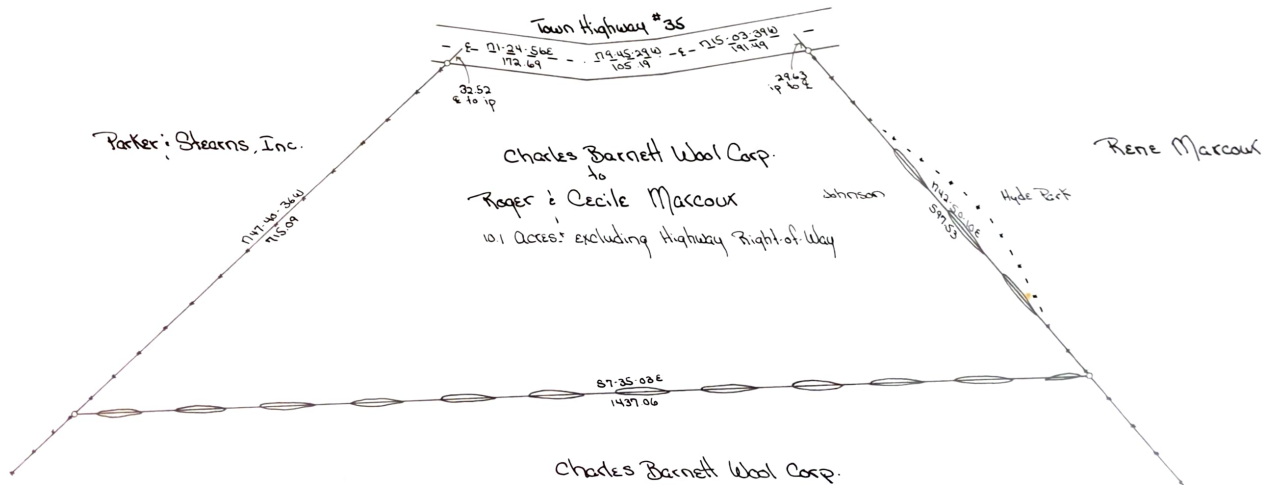 Town Highway #35
-E- N1-24-56E
172.69
N9-45-29W
105.19
-E- N15-03-39W
191.49
32.52
E to ip
29.63
ip to E
Parker & Stearns, Inc.
Charles Barnett Wool Corp.
to
Roger & Cecile Marcoux
10.1 Acres± excluding Highway Right-of-Way
Johnson
Hyde Park
Rene Marcoux
N47-40-36W
715.09
N42-50-10E
597.53
S7-35-03E
1437.06
Charles Barnett Wool Corp.